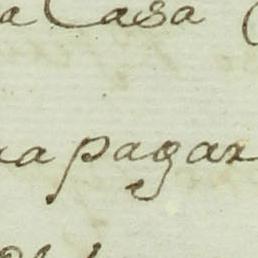 a Casa
ra pagar